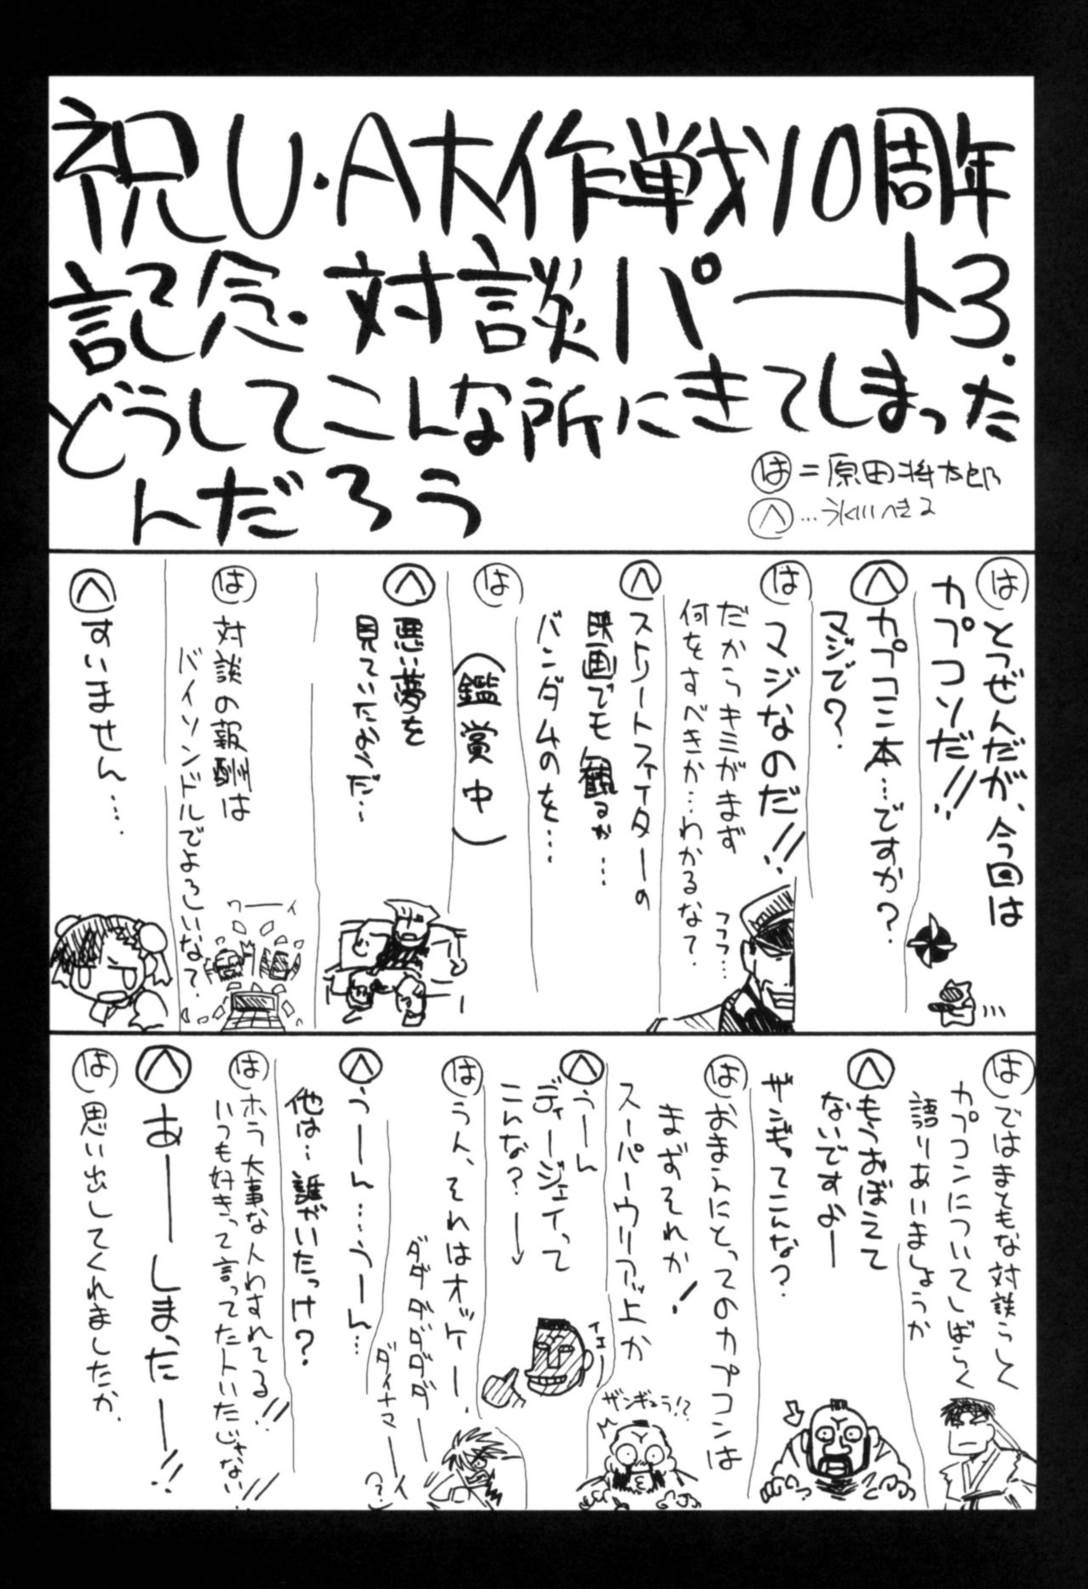 祝U・A大作戦10周年
記念・対談パート3.
どうしてこんな所にきてしまった
んだろう
は=原田将太郎
へ…氷川へきる
は とつぜんだが、今回は
カプコンだ!!
へ カプコン本…ですか?
マジで?
は マジなのだ!!
だからキミがまず
何をすべきか…わかるな?
フフフ…
へ ストリートファイターの
映画でも観るか…
バンダムのを…
は
(鑑賞中)
へ 悪い夢を
見ていたようだ…
は 対談の報酬は
バイソンドルでよろしいな?
ワーーイ
へ すいません…
は ではまともな対談らしく
カプコンについてしばらく
語りあいましょうか
へ もうおぼえて
ないですよー
ザンギってこんな?
は おまえにとってのカプコンは
まずそれか!
スーパーウリアッ上か
ザンギュラ!?
へ うーん
ディージェイって
こんな?→
イエー
は うん、それはオッケー。
ダダダダダダー
ダイナマーイ
(?)
へ うーん…うーん…
他は…誰がいたっけ?
は ホラ大事な人わすれてる!!
いつも好きって言ってた人いたじゃない!!
へ あーーしまったー!!
は 思い出してくれましたか。